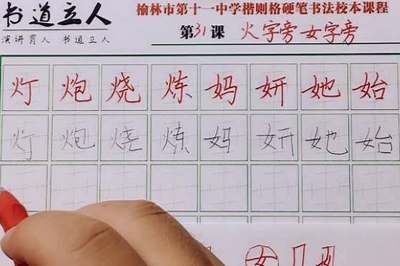 书道立人
演讲育人 书道立人
榆林市第十一中学楷则格硬笔书法校本课程
第31课 火字旁女字旁
灯炮烧炼妈妍她始
灯炮烧炼妈妍她始